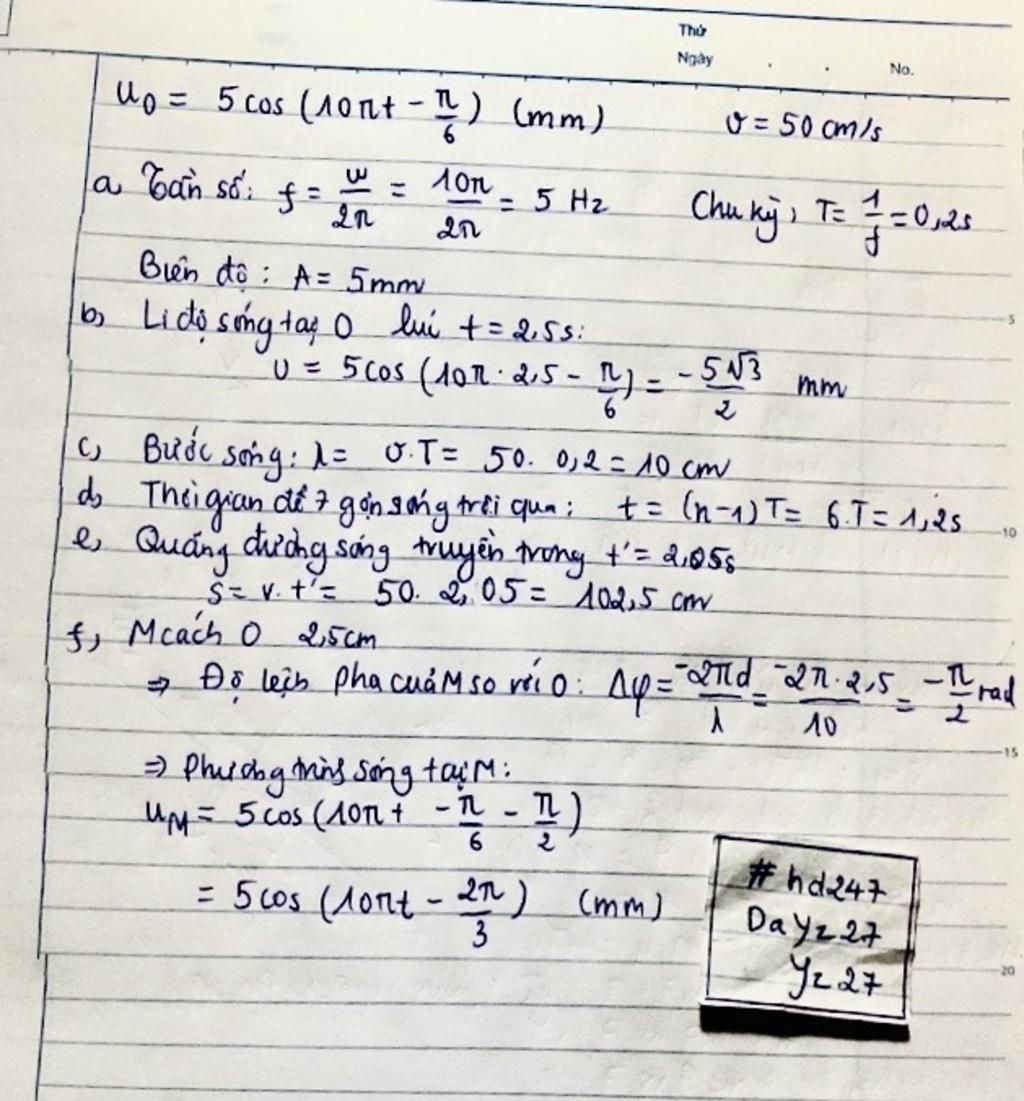 Thứ
Ngày . . No.
u₀ = 5 cos (10πt - π/6) (mm) v = 50 cm/s
a, Tần số: f = ω/2π = 10π/2π = 5 Hz Chu kỳ, T = 1/f = 0,2s
Biên độ: A = 5mm
b, Li độ sóng tại O lúc t = 2,5s:
5
U = 5 cos (10π · 2,5 - π/6) = -5√3/2 mm
c, Bước sóng: λ = v.T = 50. 0,2 = 10 cm
d, Thời gian để 7 gợn sóng trôi qua: t = (n-1)T = 6.T = 1,2s
10
e, Quãng đường sóng truyền trong t' = 2,05s
S = v. t' = 50. 2,05 = 102,5 cm
f, M cách O 2,5cm
⇒ Độ lệch pha của M so với O: Δφ = -2πd/λ = -2π·2,5/10 = -π/2 rad
15
⇒ Phương trình sóng tại M:
u_M = 5 cos (10πt - π/6 - π/2)
= 5 cos (10πt - 2π/3) (mm)
# hd247
Dayz27
Yz27
20